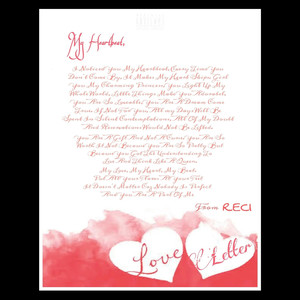 My Heartbeat,
I Noticed You My Heartbeat, Every Time You
Don't Come By, It Makes My Heart Skips Girl
You My Charming Princess, You Light Up My
Whole World, Little Things Make You Adorable,
You Are So Loveable, You Are A Dream Come
True If Not For You All my Days Will Be
Spent In Silent Contemplations, All Of My Doubt
And Uncertainties Would Not Be Lifted,
You Are Not And You Are So
Worth It Not Because You So Pretty But
Because You Got The Understanding To
Live And Think Like A Queen
My Love, My Heart, My Best,
Put All Your Fears At Your Feet
It Doesn't Matter Cuz Nobody Is Perfect
And You Are A Part Of Me
From RECI
Love Letter